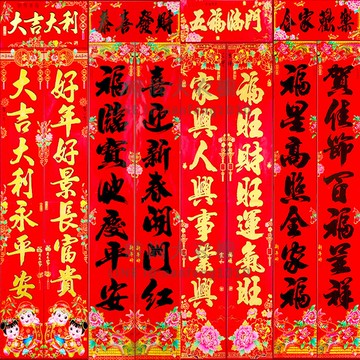 大吉大利
恭喜發財
五福臨門
合家歡樂
好年好景長富貴
大吉大利永平安
喜迎新春開門紅
福臨寶地慶平安
福旺財旺運氣旺
家興人興事業興
賀佳節百福呈祥
福星高照全家福